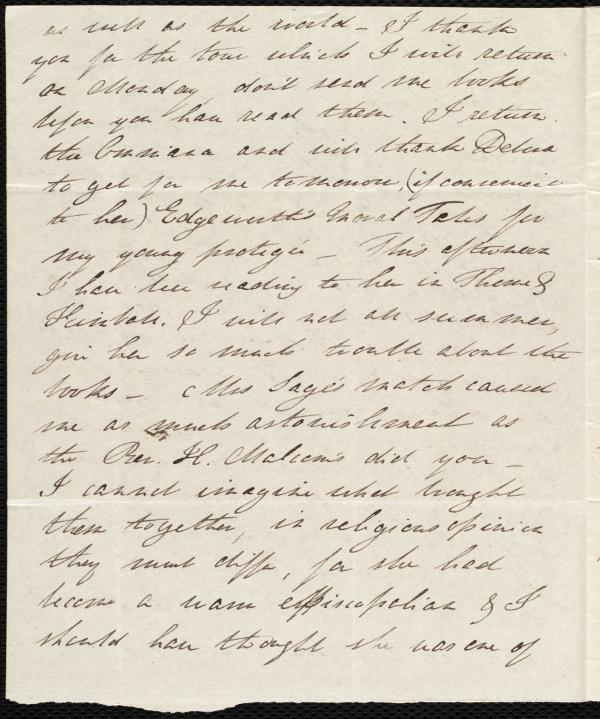 as well as the world – I thank
you for the tour which I will return
on Monday, don't send me books
before you have read them. I return
the Omniana and will thank Debra
to get for me tomorrow, (if convenient
to her) Edgeworth's Moral Tales for
my young protegée – This afternoon
I have been reading to her in Thorne &
Kimball. I will not all summer,
give her so much trouble about the
books – Mrs Sage's match caused
me as much astonishment as
the Rev. H. Malcom's did you –
I cannot imagine what brought
them together, in religious opinion
they must differ, for she had
become a warm episcopalian & I
should have thought she was one of